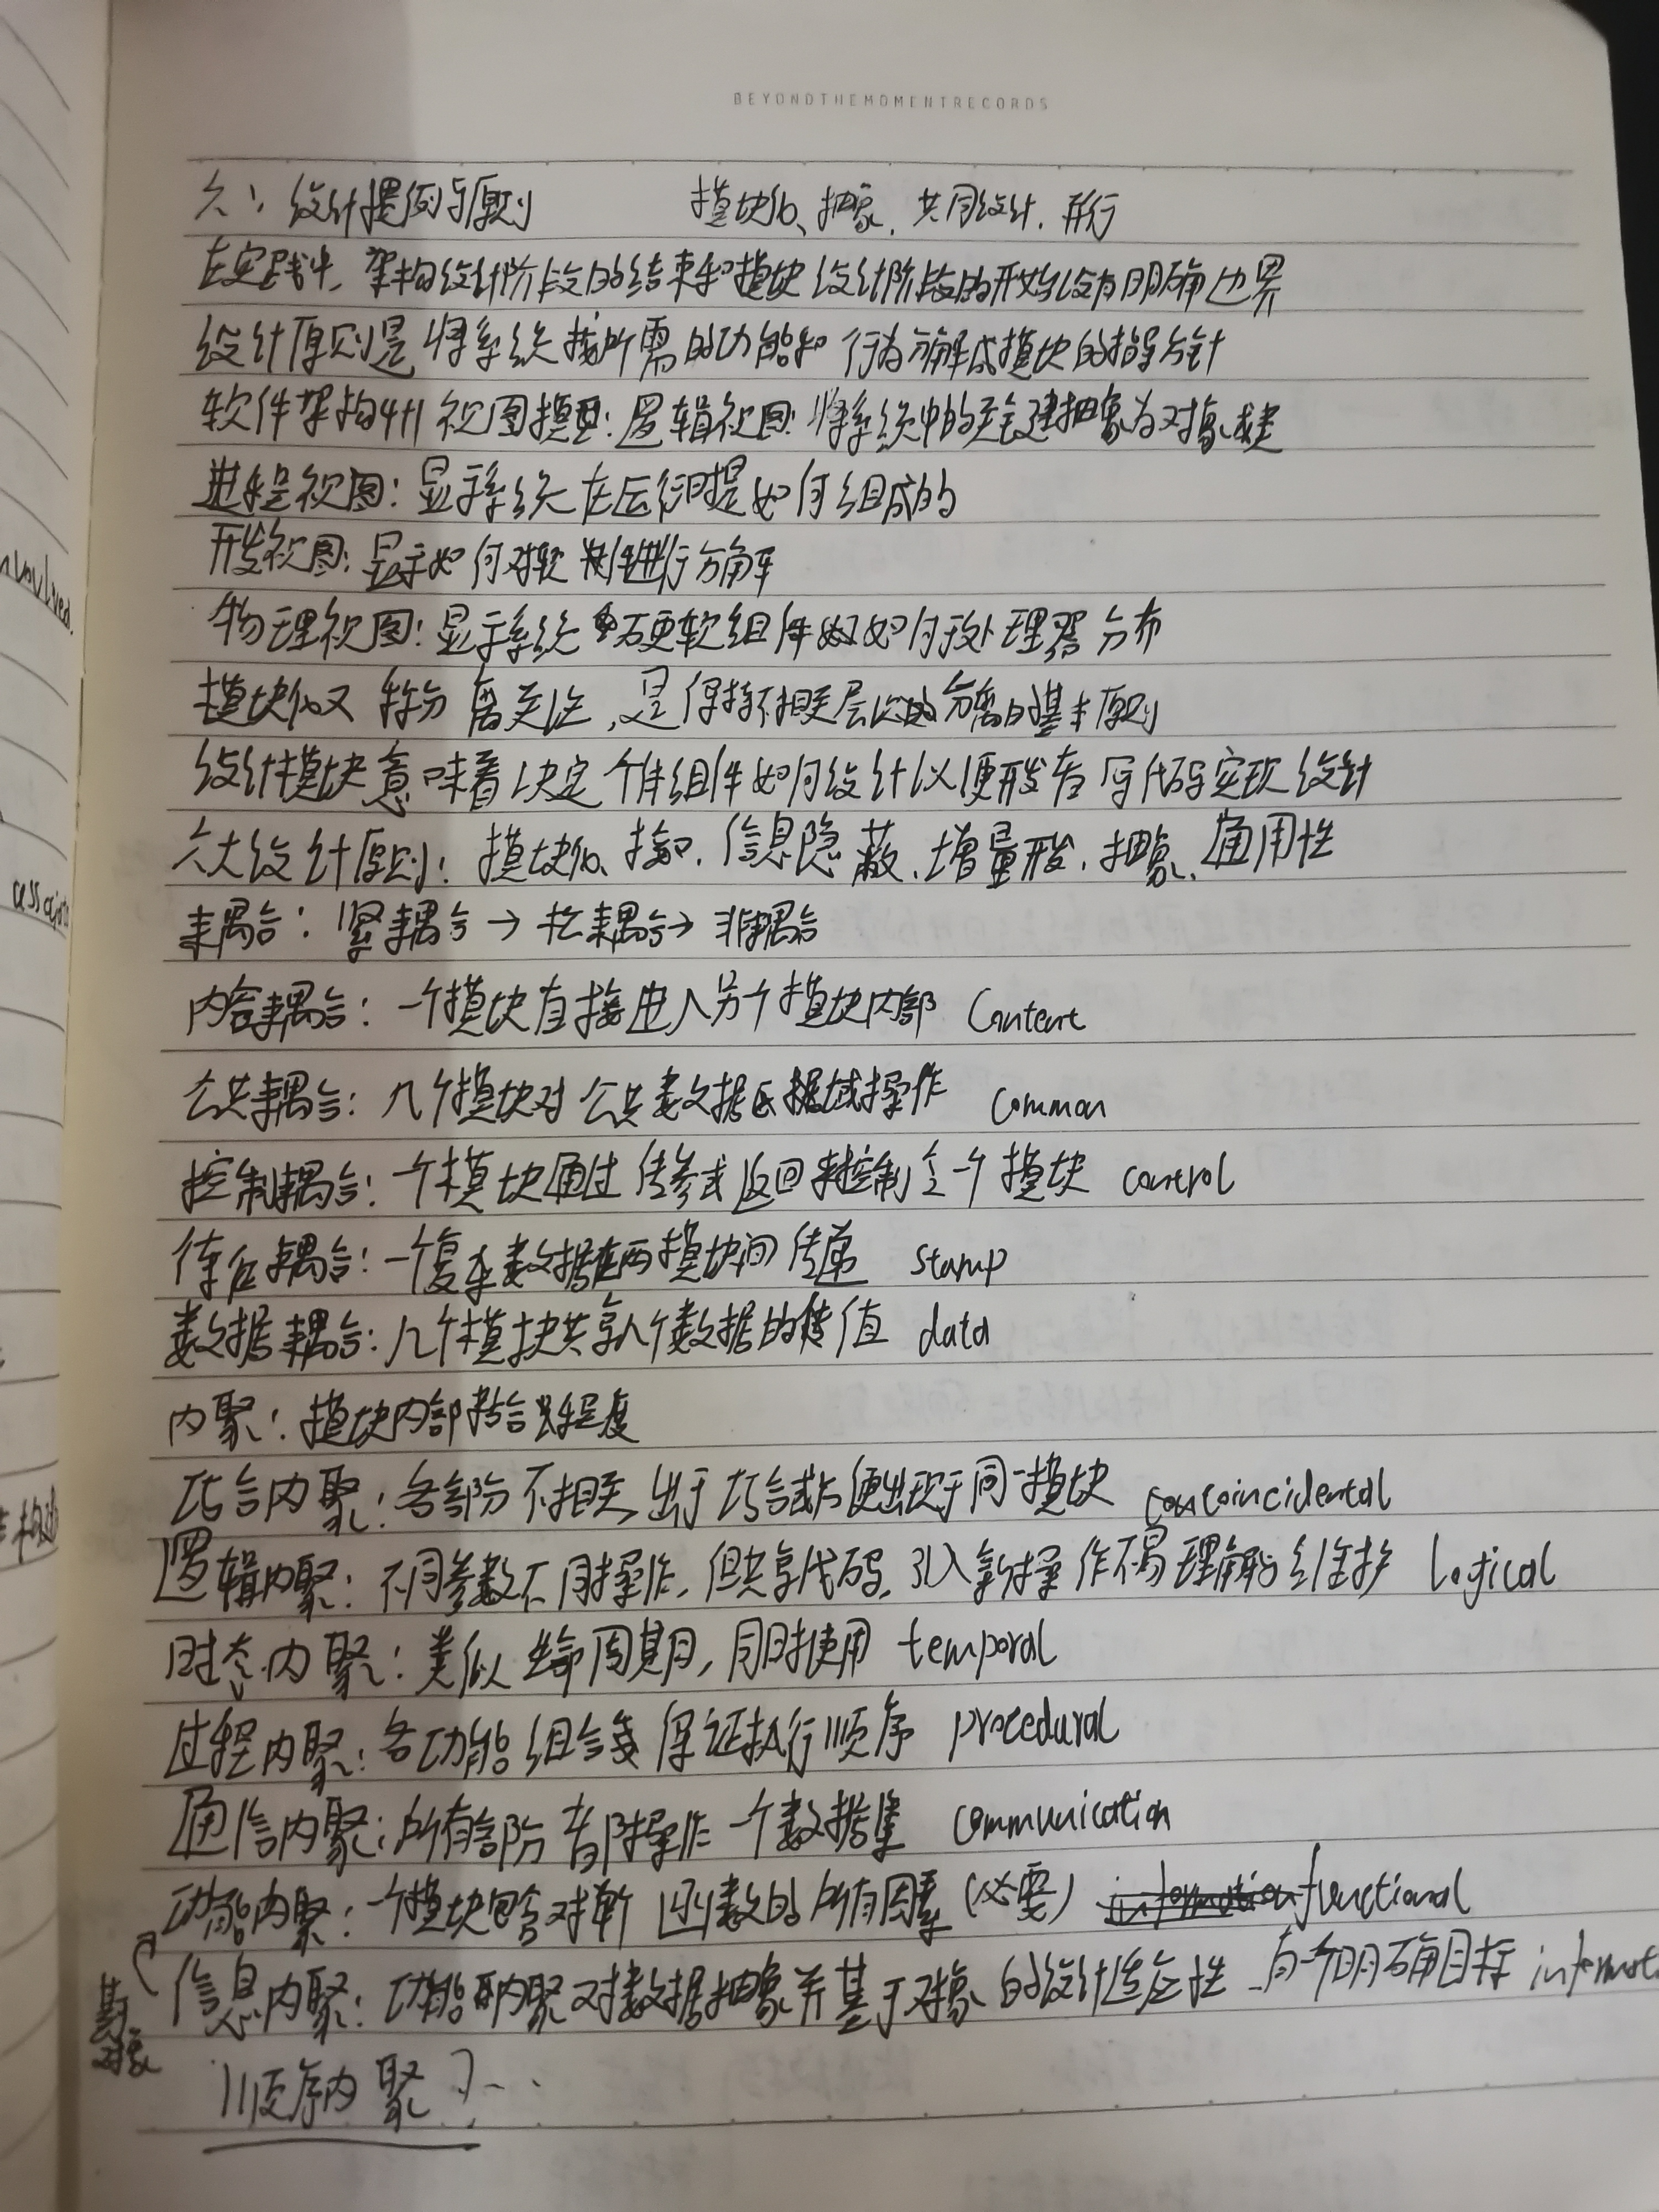 BEYONDTHEMOMENTRECORDS
六、设计惯例与原则 模块化、抽象、共同设计、并行
在实践中,架构设计阶段的结束和模块设计阶段的开始没有明确边界
设计原则是将系统按所需的功能和行为分解成模块的指导方针
软件架构4+1视图模型:逻辑视图:将系统中的关键抽象为对象或类
进程视图:显示系统在运行时是如何组成的
开发视图:显示如何对软件进行分解
物理视图:显示系统硬软组件如何按处理器分布
模块化又称分离关注,是保持不相关层次的分离的基本原则
设计模块意味着决定个体组件如何设计以便开发者写代码实现设计
六大设计原则:模块化、接口、信息隐蔽、增量开发、抽象、通用性
耦合:紧耦合→松耦合→非耦合
内容耦合:一个模块直接进入另一个模块内部 Content
公共耦合:几个模块对公共数据区域操作 common
控制耦合:一个模块通过传参或返回来控制另一个模块 control
标记耦合:一个复杂数据在两模块间传递 stamp
数据耦合:几个模块共享几个数据的值 data
内聚:模块内部结合紧密程度
巧合内聚:各部份不相关,出于巧合或方便出现于同一模块 coincidental
逻辑内聚:不同参数不同操作,但共享代码,引入新操作不易理解和维护 Logical
时态内聚:类似生命周期,同时使用 temporal
过程内聚:各功能组合或保证执行顺序 procedural
通信内聚:所有部份都操作一个数据集 communication
功能内聚:一个模块包含对单一函数的所有因素(必要) information functional
信息内聚:功能内聚对数据抽象并基于对象的设计适应性 有一个明确目标 informat
基于
对象
顺序内聚?...
nvovlved.